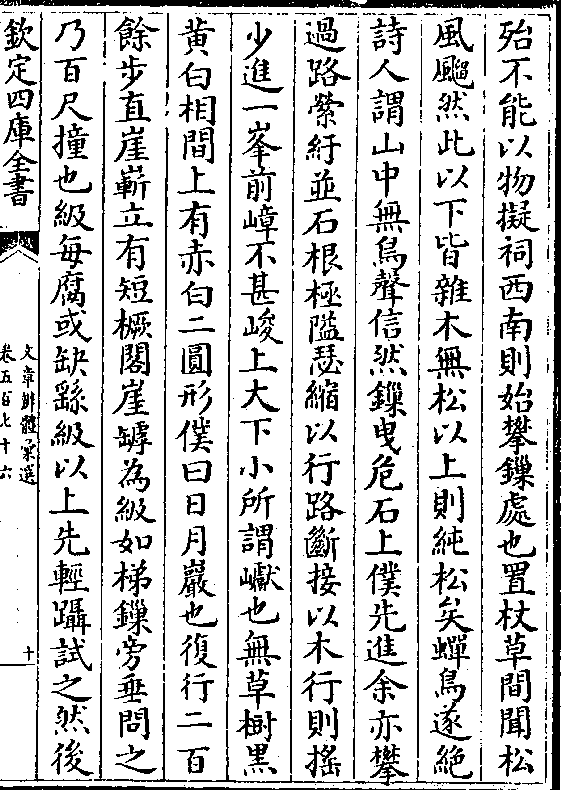 殆不能以物擬祠西南則始攀鏁處也置杖草間聞松
風颼然此以下皆雜木無松以上則純松矣蟬鳥遂絶
詩人謂山中無鳥聲信然鏁曳危石上僕先進余亦攀
過路縈紆並石根極隘瑟縮以行路斷接以木行則搖
少進一峯前嶂不甚峻上大下小所謂巘也無草樹黑
黄白相間上有赤白二圓形僕曰日月巖也復行二百
餘步直崖嶄立有短橛閣崖罅為級如梯鏁旁垂問之
乃百尺撞也級每腐或缺繇級以上先輕躡試之然後
欽定四庫全書
文章辨體彚選
卷五百七十六
十